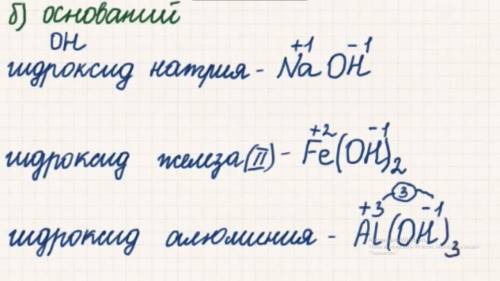 б) оснований
OH
гидроксид натрия - Na⁺¹OH⁻¹
гидроксид железа (II) - Fe⁺²(OH)⁻¹₂
3
гидроксид алюминия - Al⁺³(OH)⁻¹₃